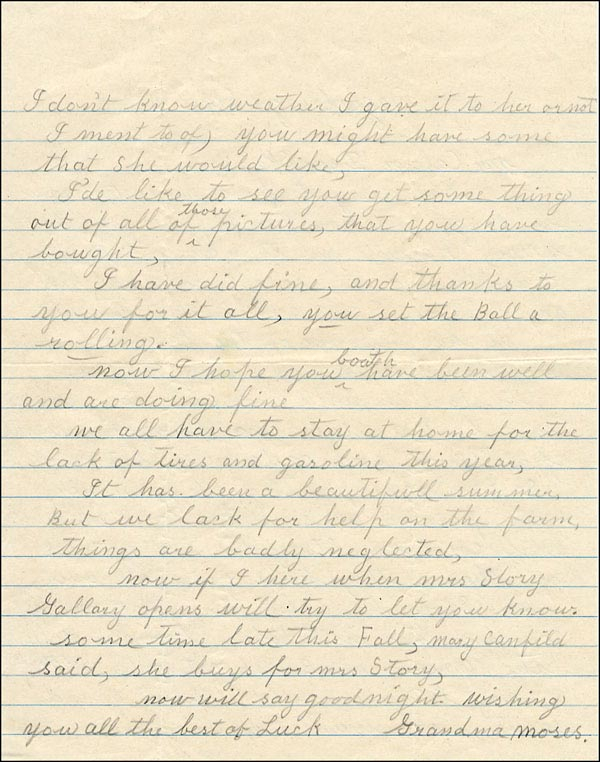 I don't know weather I gave it to her or not
I ment to of, you might have some
that She would like,
I'de like to see you get some thing
out of all of those pictures, that you have
bought,
I have did fine, and thanks to
you for it all, you set the Ball a
rolling.
now I hope you boath have been well
and are doing fine
we all have to stay at home for the
lack of tires and gasoline this year,
It has been a beautifull summer,
But we lack for help on the farm,
things are badly neglected,
now if I here when mrs Story
Gallary opens will try to let you know
some time late this Fall, mary Canfild
said, she buys for mrs Story,
now will say goodnight. wishing
you all the best of Luck Grandma Moses.